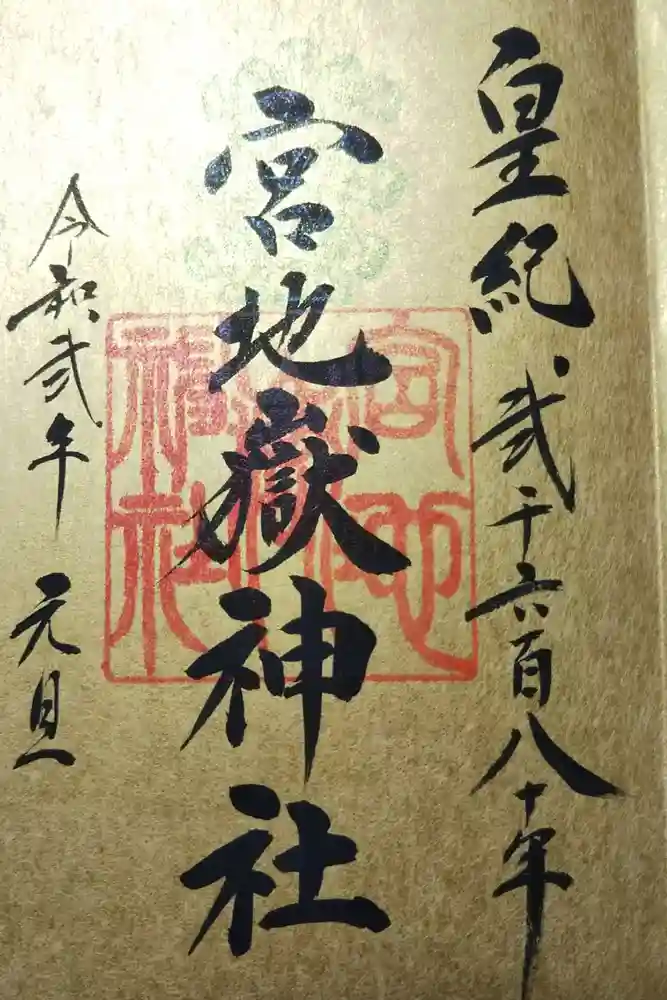 皇紀弐千六百八十年
宮地嶽神社
令和弐年 元旦